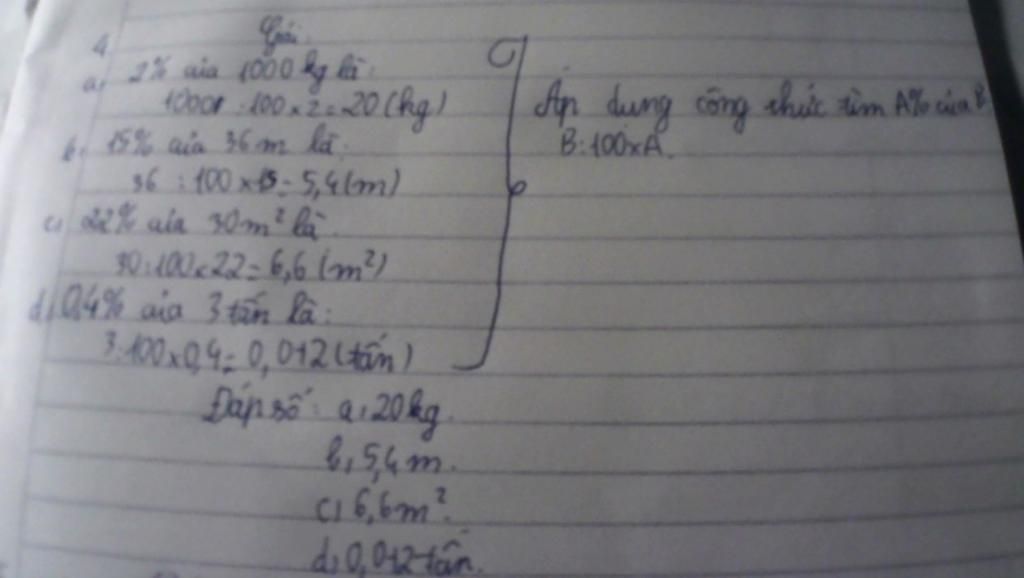 4
Giải:
a, 2% của 1000 kg là:
1000 : 100 x 2 = 20 (kg)
b, 15% của 36 m là:
36 : 100 x 15 = 5,4 (m)
c, 22% của 30 m² là
30 : 100 x 22 = 6,6 (m²)
d, 0,4% của 3 tấn là:
3 : 100 x 0,4 = 0,012 (tấn)
Đáp số: a, 20 kg.
b, 5,4 m.
c, 6,6 m².
d, 0,012 tấn.
Áp dung công thức tìm A% của B
B : 100 x A.